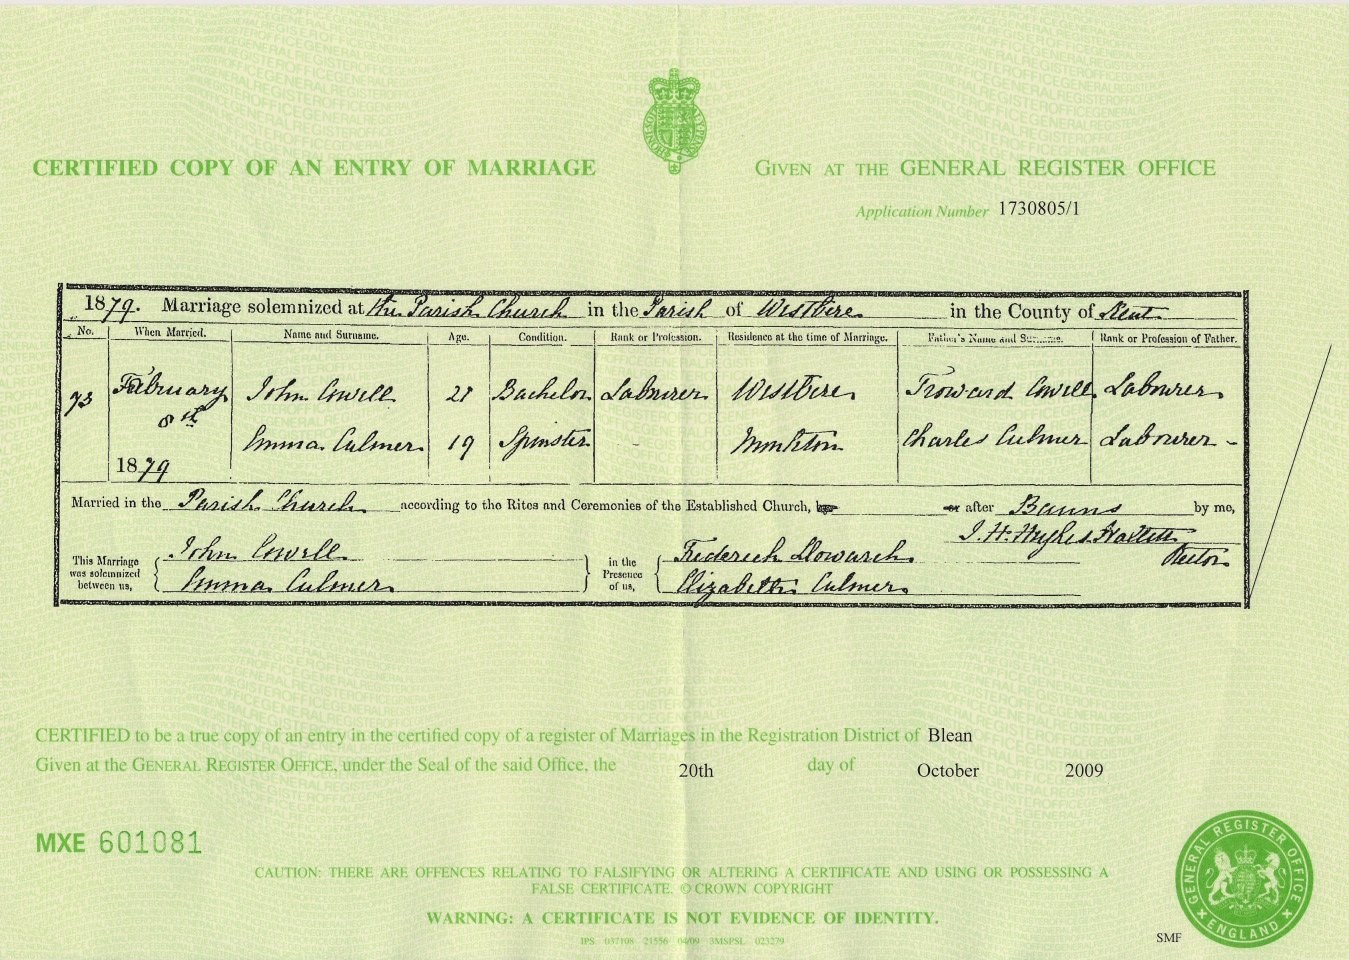 CERTIFIED COPY OF AN ENTRY OF MARRIAGE
GIVEN AT THE GENERAL REGISTER OFFICE
Application Number 1730805/1
1879. Marriage solemnized at the Parish Church in the Parish of Westbere in the County of Kent
No. When Married. Name and Surname. Age. Condition. Rank or Profession. Residence at the time of Marriage. Father's Name and Surname. Rank or Profession of Father.
73 February John Cowell 21 Bachelor Labourer Westbere Troward Cowell Labourer
8th
Emma Culmer 19 Spinster - Monkton Charles Culmer Labourer -
1879
Married in the Parish Church according to the Rites and Ceremonies of the Established Church, by or after Banns by me,
J. H. Hughes Hallett
Rector
This Marriage was solemnized between us, John Cowell
Emma Culmer
in the Presence of us, Frederick
Elizabeth Culmer
CERTIFIED to be a true copy of an entry in the certified copy of a register of Marriages in the Registration District of Blean
Given at the GENERAL REGISTER OFFICE, under the Seal of the said Office, the 20th day of October 2009
MXE 601081
CAUTION: THERE ARE OFFENCES RELATING TO FALSIFYING OR ALTERING A CERTIFICATE AND USING OR POSSESSING A
FALSE CERTIFICATE. © CROWN COPYRIGHT
WARNING: A CERTIFICATE IS NOT EVIDENCE OF IDENTITY.
IPS 037108 21556 04/09 3MSPSL 023279
SMF
GENERAL REGISTER OFFICE
ENGLAND